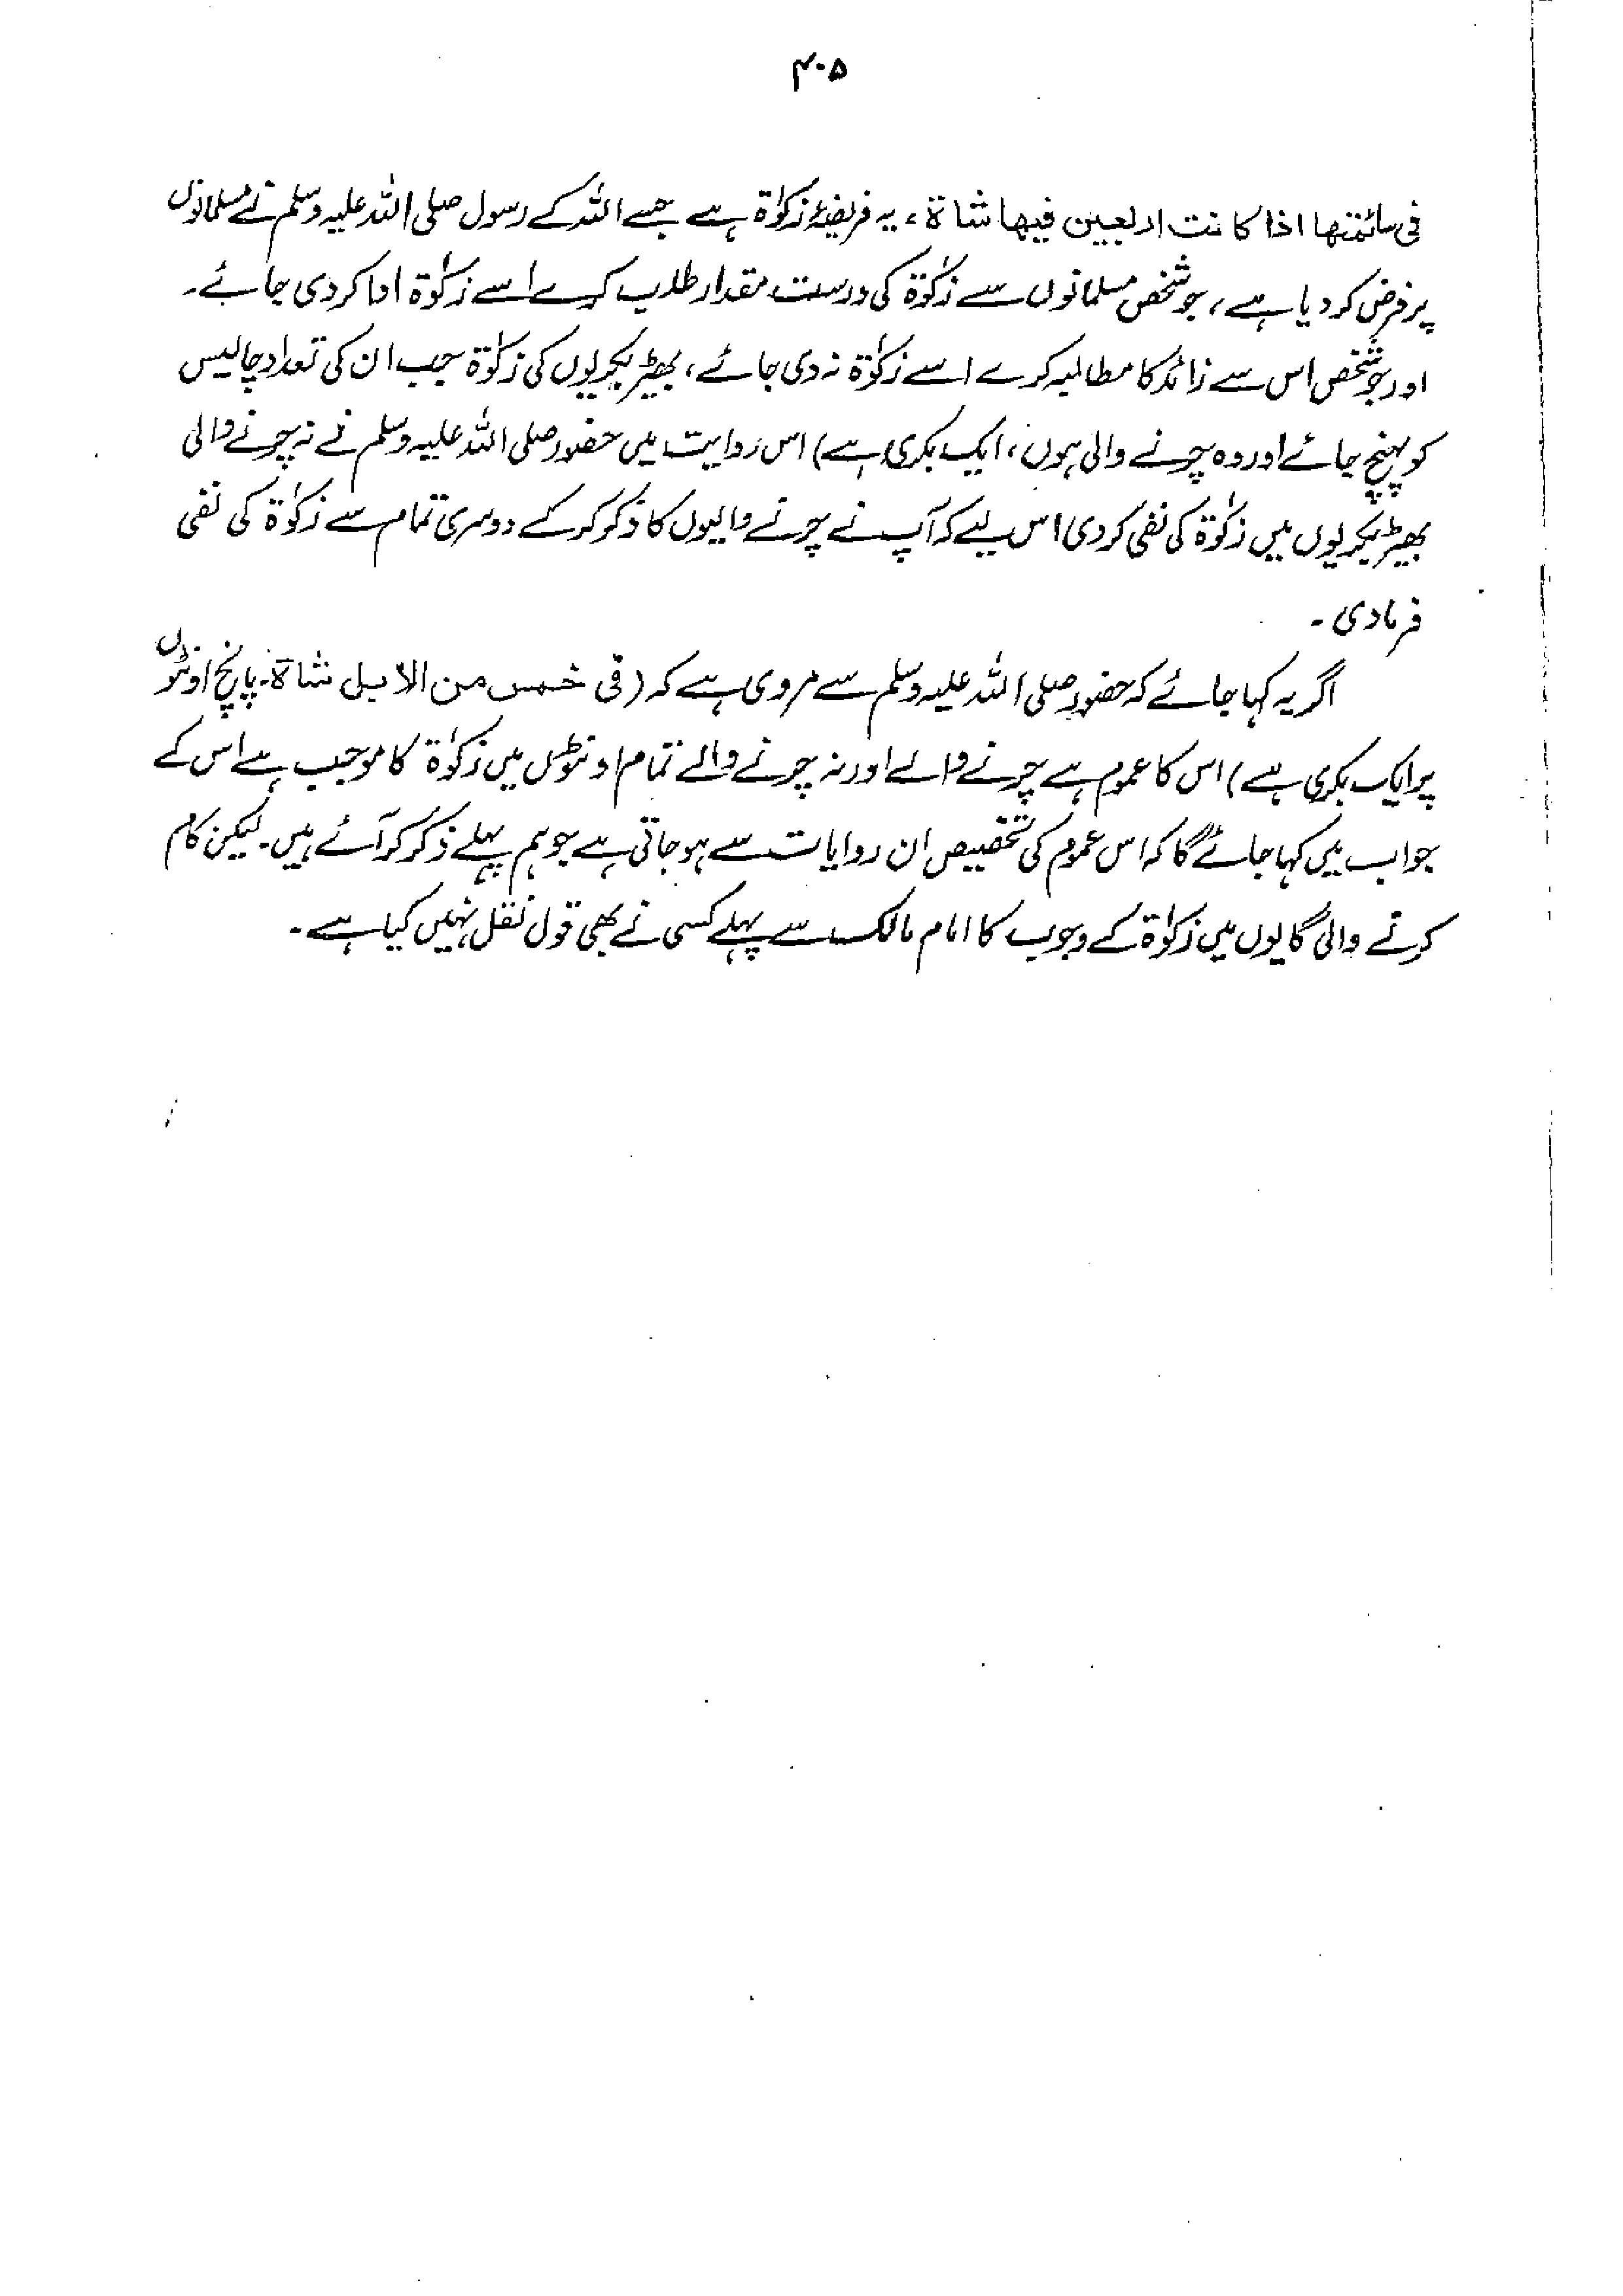 ۴۰۵
فی سائمتھا اذا کانت اربعین فیھا شاۃ، یہ فریضۂ زکوٰۃ ہے جسے اللہ کے رسول صلی اللہ علیہ وسلم نے مسلمانوں
پر فرض کر دیا ہے، جو شخص مسلمانوں سے زکوٰۃ کی درست مقدار طلب کرے اسے زکوٰۃ ادا کر دی جائے۔
اور جو شخص اس سے زائد کا مطالبہ کرے اسے زکوٰۃ نہ دی جائے، بھیڑ بکریوں کی زکوٰۃ جب ان کی تعداد چالیس
کو پہنچ جائے اور وہ چرنے والی ہوں، ایک بکری ہے) اس روایت میں حضور صلی اللہ علیہ وسلم نے نہ چرنے والی
بھیڑ بکریوں میں زکوٰۃ کی نفی کر دی اس لیے کہ آپ نے چرنے والیوں کا ذکر کر کے دوسری تمام سے زکوٰۃ کی نفی
فرما دی۔
اگر یہ کہا جائے کہ حضور صلی اللہ علیہ وسلم سے مروی ہے کہ (فی خمس من الابل شاۃ۔ پانچ اونٹوں
پر ایک بکری ہے) اس کا عموم ہے چرنے والے اور نہ چرنے والے تمام اونٹوں میں زکوٰۃ کا موجب ہے اس کے
جواب میں کہا جائے گا کہ اس عموم کی تخصیص ان روایات سے ہو جاتی ہے جو ہم پہلے ذکر کر آئے ہیں۔ لیکن کام
کرنے والی گایوں میں زکوٰۃ کے وجوب کا امام مالک سے پہلے کسی نے بھی قول نقل نہیں کیا ہے۔